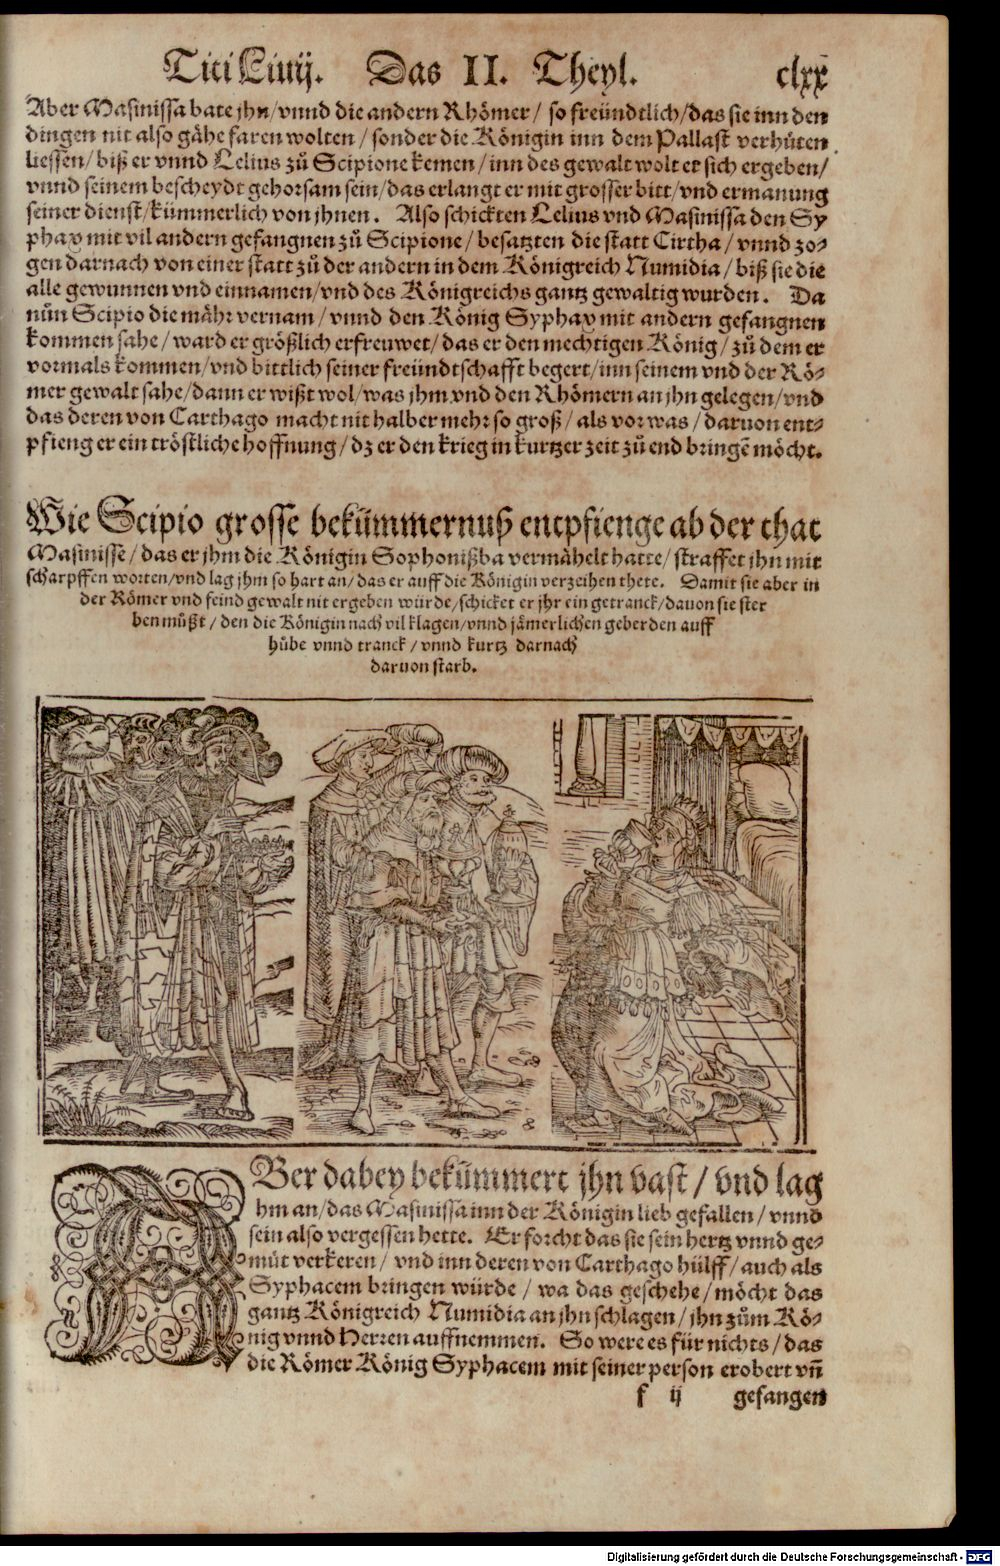 Titi Liuij. Das II. Theyl. clxx
Aber Masinissa bate jhn / vnnd die andern Rhömer / so freündtlich / das sie inn den
dingen nit also gähe faren wolten / sonder die Königin inn dem Pallast verhüten
liessen / biß er vnnd Lelius zů Scipione kemen / inn des gewalt wolt er sich ergeben /
vnnd seinem bescheydt gehorsam sein / das erlangt er mit grosser bitt / vnd ermanung
seiner dienst / kümmerlich von jhnen. Also schickten Lelius vnd Masinissa den Sy
phax mit vil andern gefangnen zů Scipione / besatzten die statt Cirtha / vnnd zo⸗
gen darnach von einer statt zů der andern in dem Königreich Numidia / biß sie die
alle gewunnen vnd einnamen / vnd des Königreichs gantz gewaltig wurden. Da
nůn Scipio die mähr vernam / vnnd den König Syphax mit andern gefangnen
kommen sahe / ward er größlich erfreuwet / das er den mechtigen König / zů dem er
vormals kommen / vnd bittlich seiner freündtschafft begert / inn seinem vnd der Rö⸗
mer gewalt sahe / dann er wißt wol / was jhm vnd den Rhömern an jhn gelegen / vnd
das deren von Carthago macht nit halber mehr so groß / als vor was / daruon ent⸗
pfieng er ein tröstliche hoffnung / dz er den krieg in kurtzer zeit zů end bringē möcht.
Wie Scipio grosse bekümmernuß entpfienge ab der that
Masinisse / das er jhm die Königin Sophonißba vermähelt hatte / straffet jhn mit
scharpffen worten / vnd lag jhm so hart an / das er auff die Königin verzeihen thete. Damit sie aber in
der Römer vnd feind gewalt nit ergeben würde / schicket er jhr ein getranck / dauon sie ster
ben müßt / den die Königin nach vil klagen / vnnd jämerlichen geberden auff
hübe vnnd tranck / vnnd kurtz darnach
daruon starb.
8
ABer dabey bekümmert jhn vast / vnd lag
hm an / das Masinissa inn der Königin lieb gefallen / vnnd
sein also vergessen hette. Er forcht das sie sein hertz vnnd ge⸗
müt verkeren / vnd inn deren von Carthago hülff / auch als
Syphacem bringen würde / wa das geschehe / möcht das
gantz Königreich Numidia an jhn schlagen / jhn zům Kö⸗
nig vnnd Herren auffnemmen. So were es für nichts / das
die Römer König Syphacem mit seiner person erobert vñ
f ij gefangen
Digitalisierung gefördert durch die Deutsche Forschungsgemeinschaft - DFG